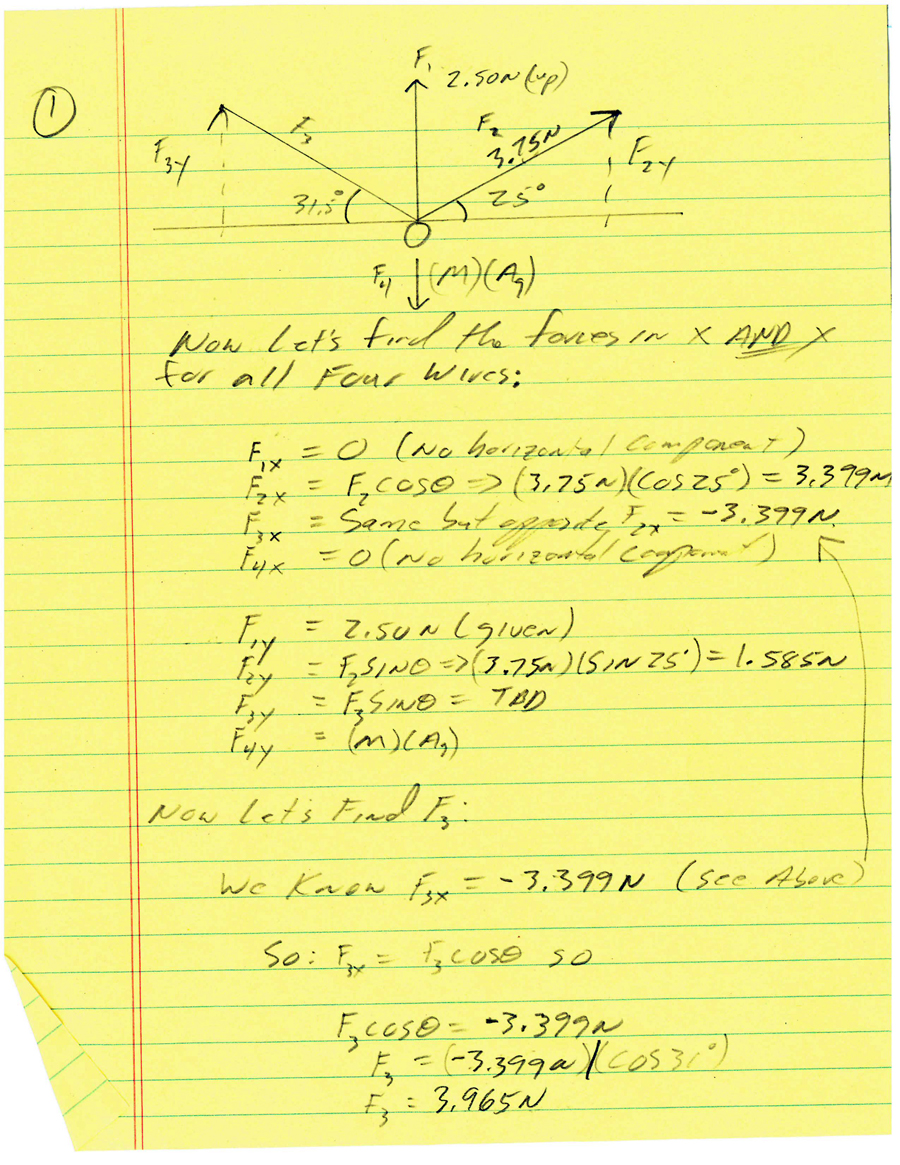 1
F₁
2.50N (up)
F₃
F₂
3.75N
F₃y
F₂y
31.5°
25°
F₄ (M)(Ag)
Now Let's find the forces in X AND Y
for all Four Wires:
F₁x = 0 (No horizontal component)
F₂x = F₂cosθ => (3.75N)(COS25°) = 3.399N
F₃x = Same but opposite F₂x = -3.399N
F₄x = 0 (No horizontal component)
F₁y = 2.50N (given)
F₂y = F₂SINθ => (3.75N)(SIN25°) = 1.585N
F₃y = F₃SINθ = TBD
F₄y = (M)(Ag)
Now Let's Find F₃:
We Know F₃x = -3.399N (See Above)
So: F₃x = F₃cosθ so
F₃cosθ = -3.399N
F₃ = (-3.399N)/(COS31°)
F₃ = 3.965N